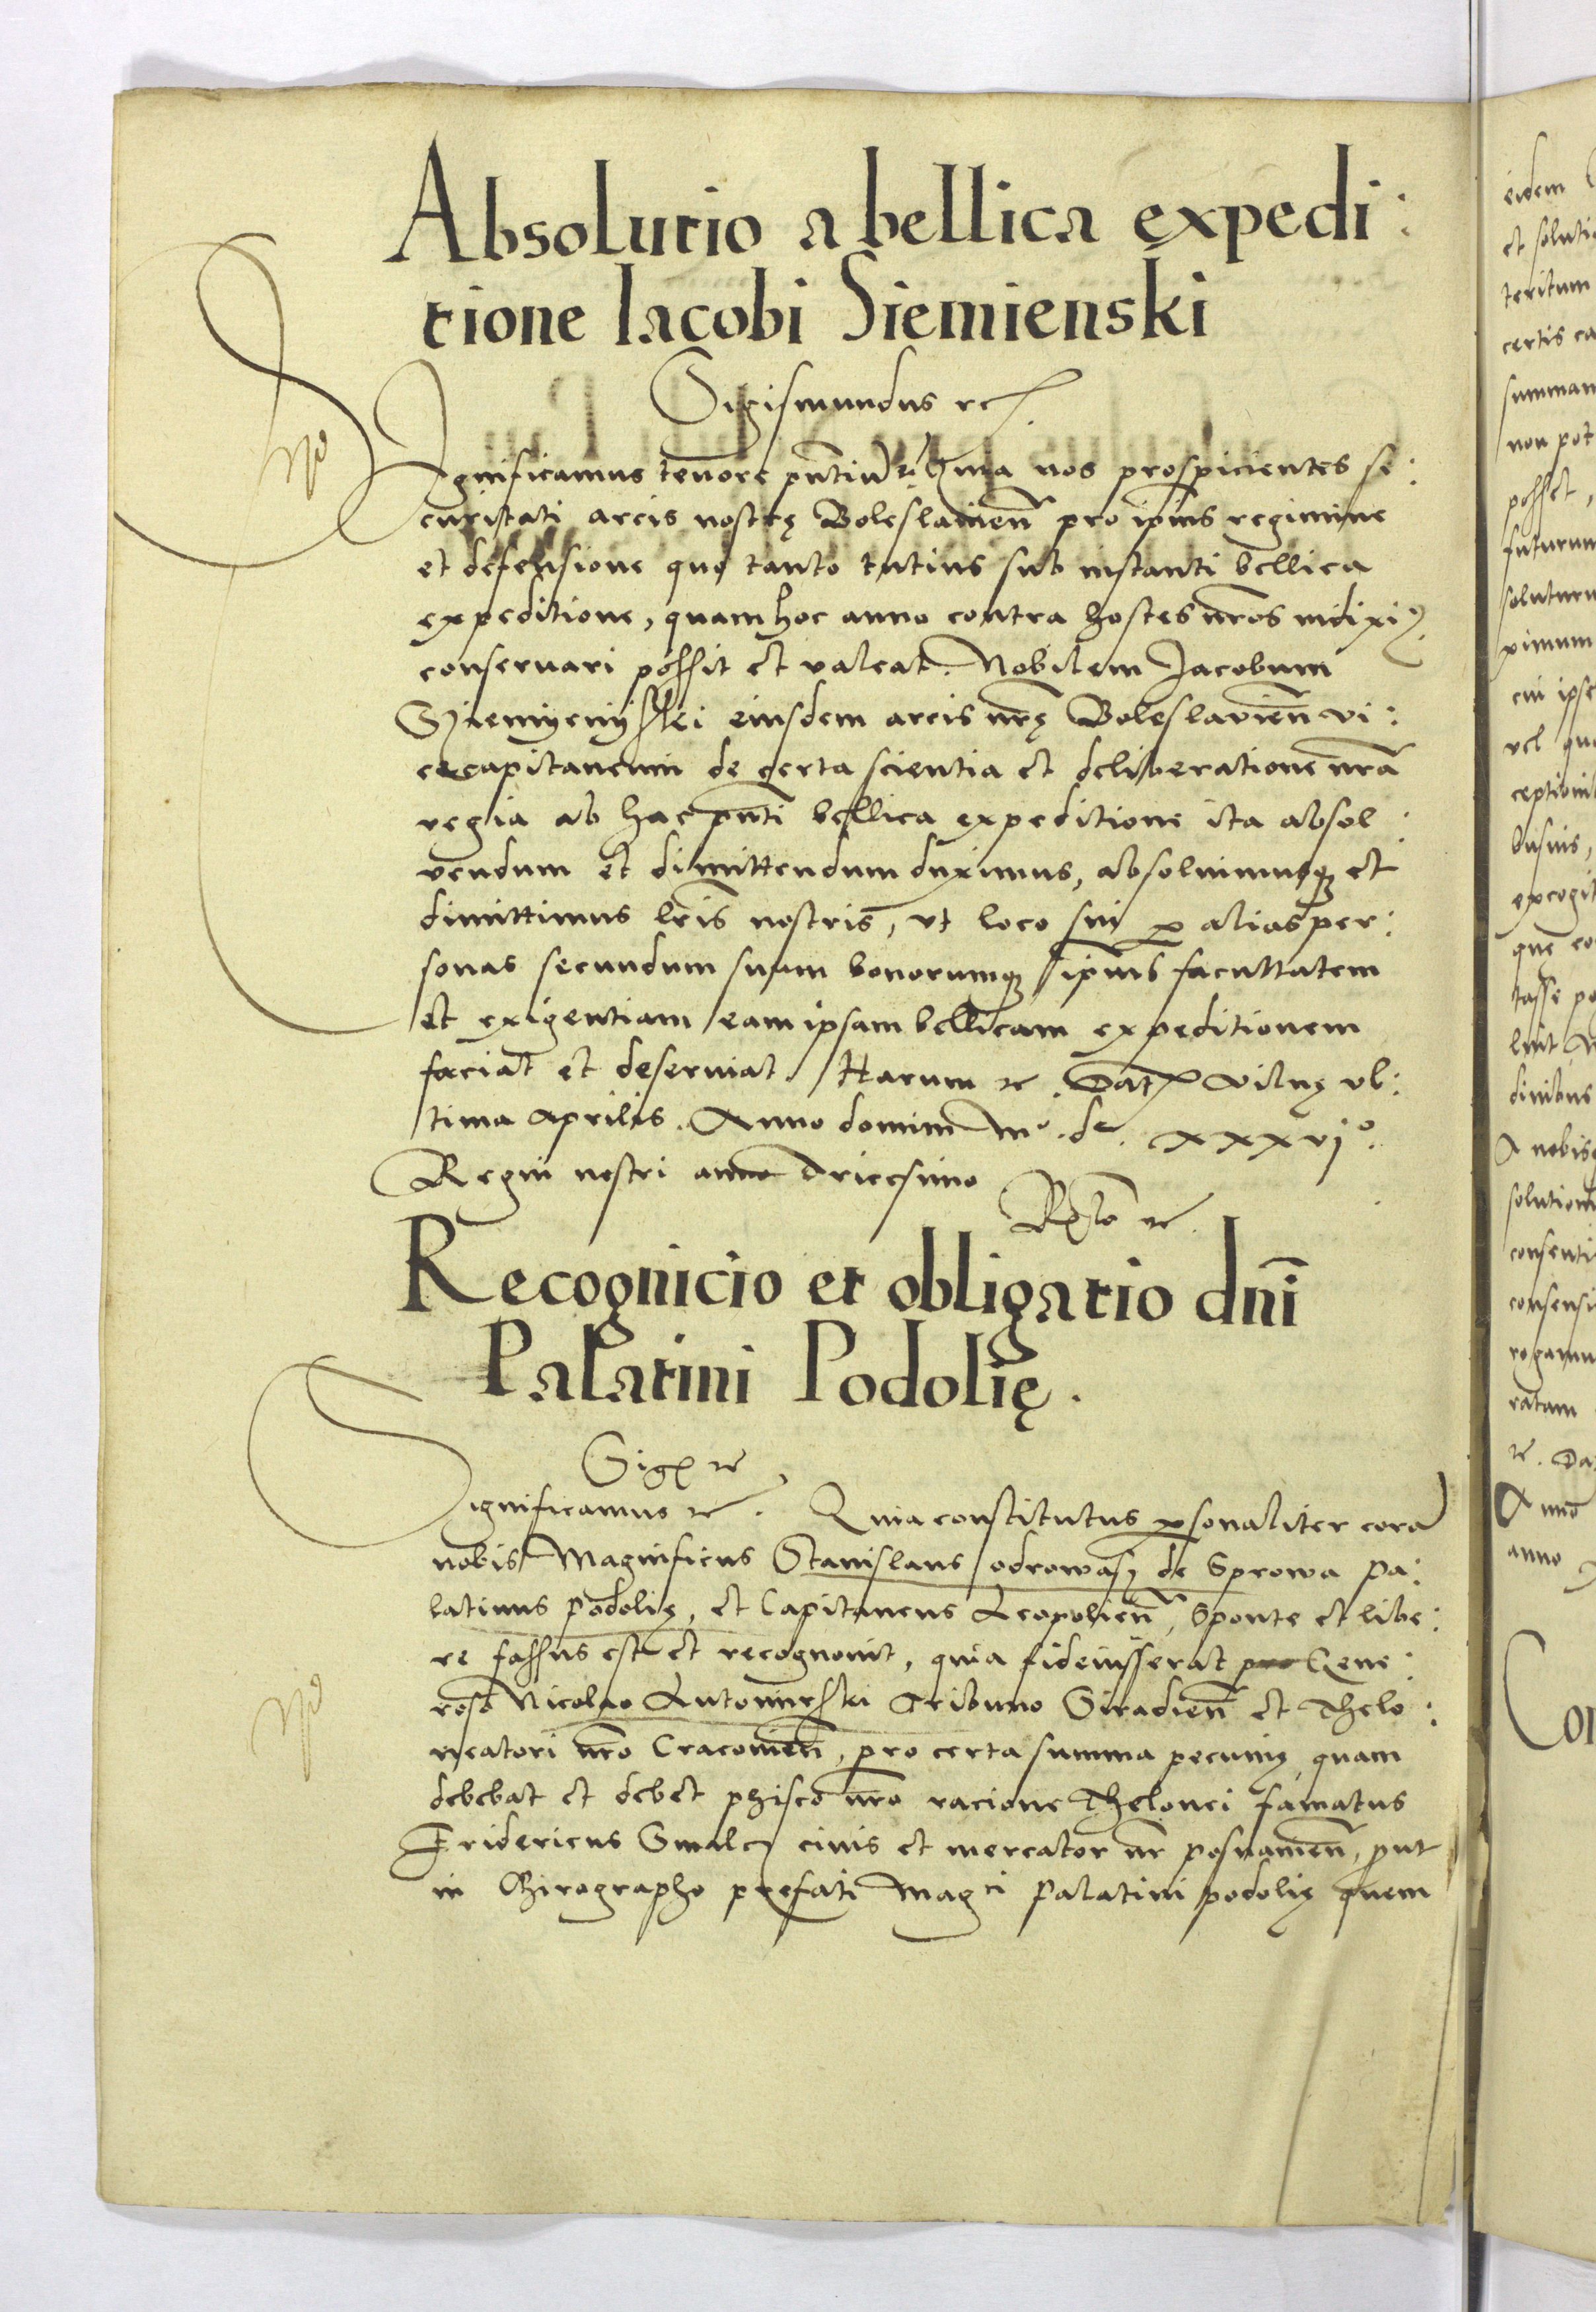 Absolutio a bellica expedi:
tione Iacobi Siemienski
Sigismundus etc.
Significamus tenore pntiu etc. Quia nos prospicientes se:
curitati arcis nostrę Boleslavien pro ipius regimine
et defensione quo tanto tutius sub instanti bellica
expeditione, quam hoc anno contra hostes nros indixi
conservari possit et valeat. Nobilem Jacobum
Siemyenysski eiusdem arcis nrę Boleslavien vi:
cecapitaneum de certa scientia et deliberatione nra
regia ab hac pnti bellica expeditione ita absol:
vendum et dimittendum duximus, absolvimusq et
dimittimus lris nostris, ut loco sui p alias per:
sonas secundum suam bonorumq ipius facultatem
et exigentiam eam ipsam bellicam expeditionem
faciat et deserviat. Harum etc. Dat Vilnę ul:
tima Aprilis. Anno domini Mo. dc. xxxvjo.
Regni nostri anno Tricesimo
Recognicio et obligatio dni
Palatini Podolię.
Sig etc
Significamus etc. Quia constitutus psonaliter cora
nobis Magnificus Stanislaus Odrowasz de Sprowa Pa:
latinus Podolię, et Capitaneus Leopolien, sponte et libe:
re fassus est et recognovit, quia fideiusserat Gene:
roso Nicolao Lutomirski Tribuno Siradien et Thelo:
neatori nro Cracovien, pro certa summa pecunię quam
debebat et debet phisco nro racione Thelonei famatus
Fridericus Smalcz civis et mercator nr posnanien, put
in Chirographo prefati Magci Palatini podolię quem
eidem
et soluti
teritum
certis ca
summam
non pot
posset,
futurum
ximum
cui ipse
vel qu
ceptioni
que co
dinibus
A nobis
solutioni
consenti
consensi
rogamu
ratam
etc. Da
Anno
anno
Con